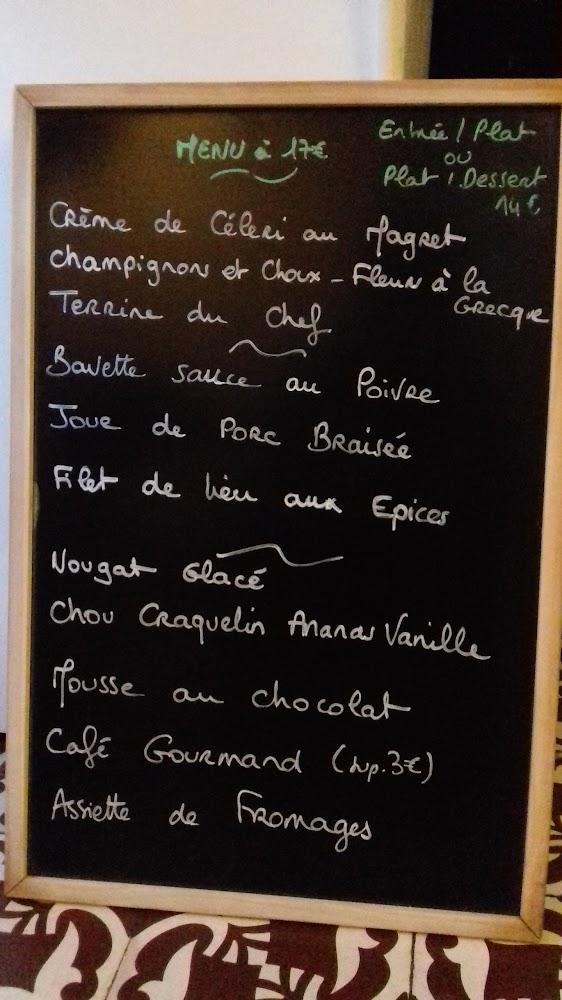 MENU à 17€
Entrée / Plat
ou
Plat / Dessert
14€
Crème de Céleri au Magret
Champignons et Choux-Fleurs à la
Grecque
Terrine du Chef
Bavette sauce au Poivre
Joue de Porc Braisée
Filet de lieu aux Epices
Nougat Glacé
Chou Craquelin Ananas Vanille
Mousse au chocolat
Café Gourmand (sup. 3€)
Assiette de Fromages